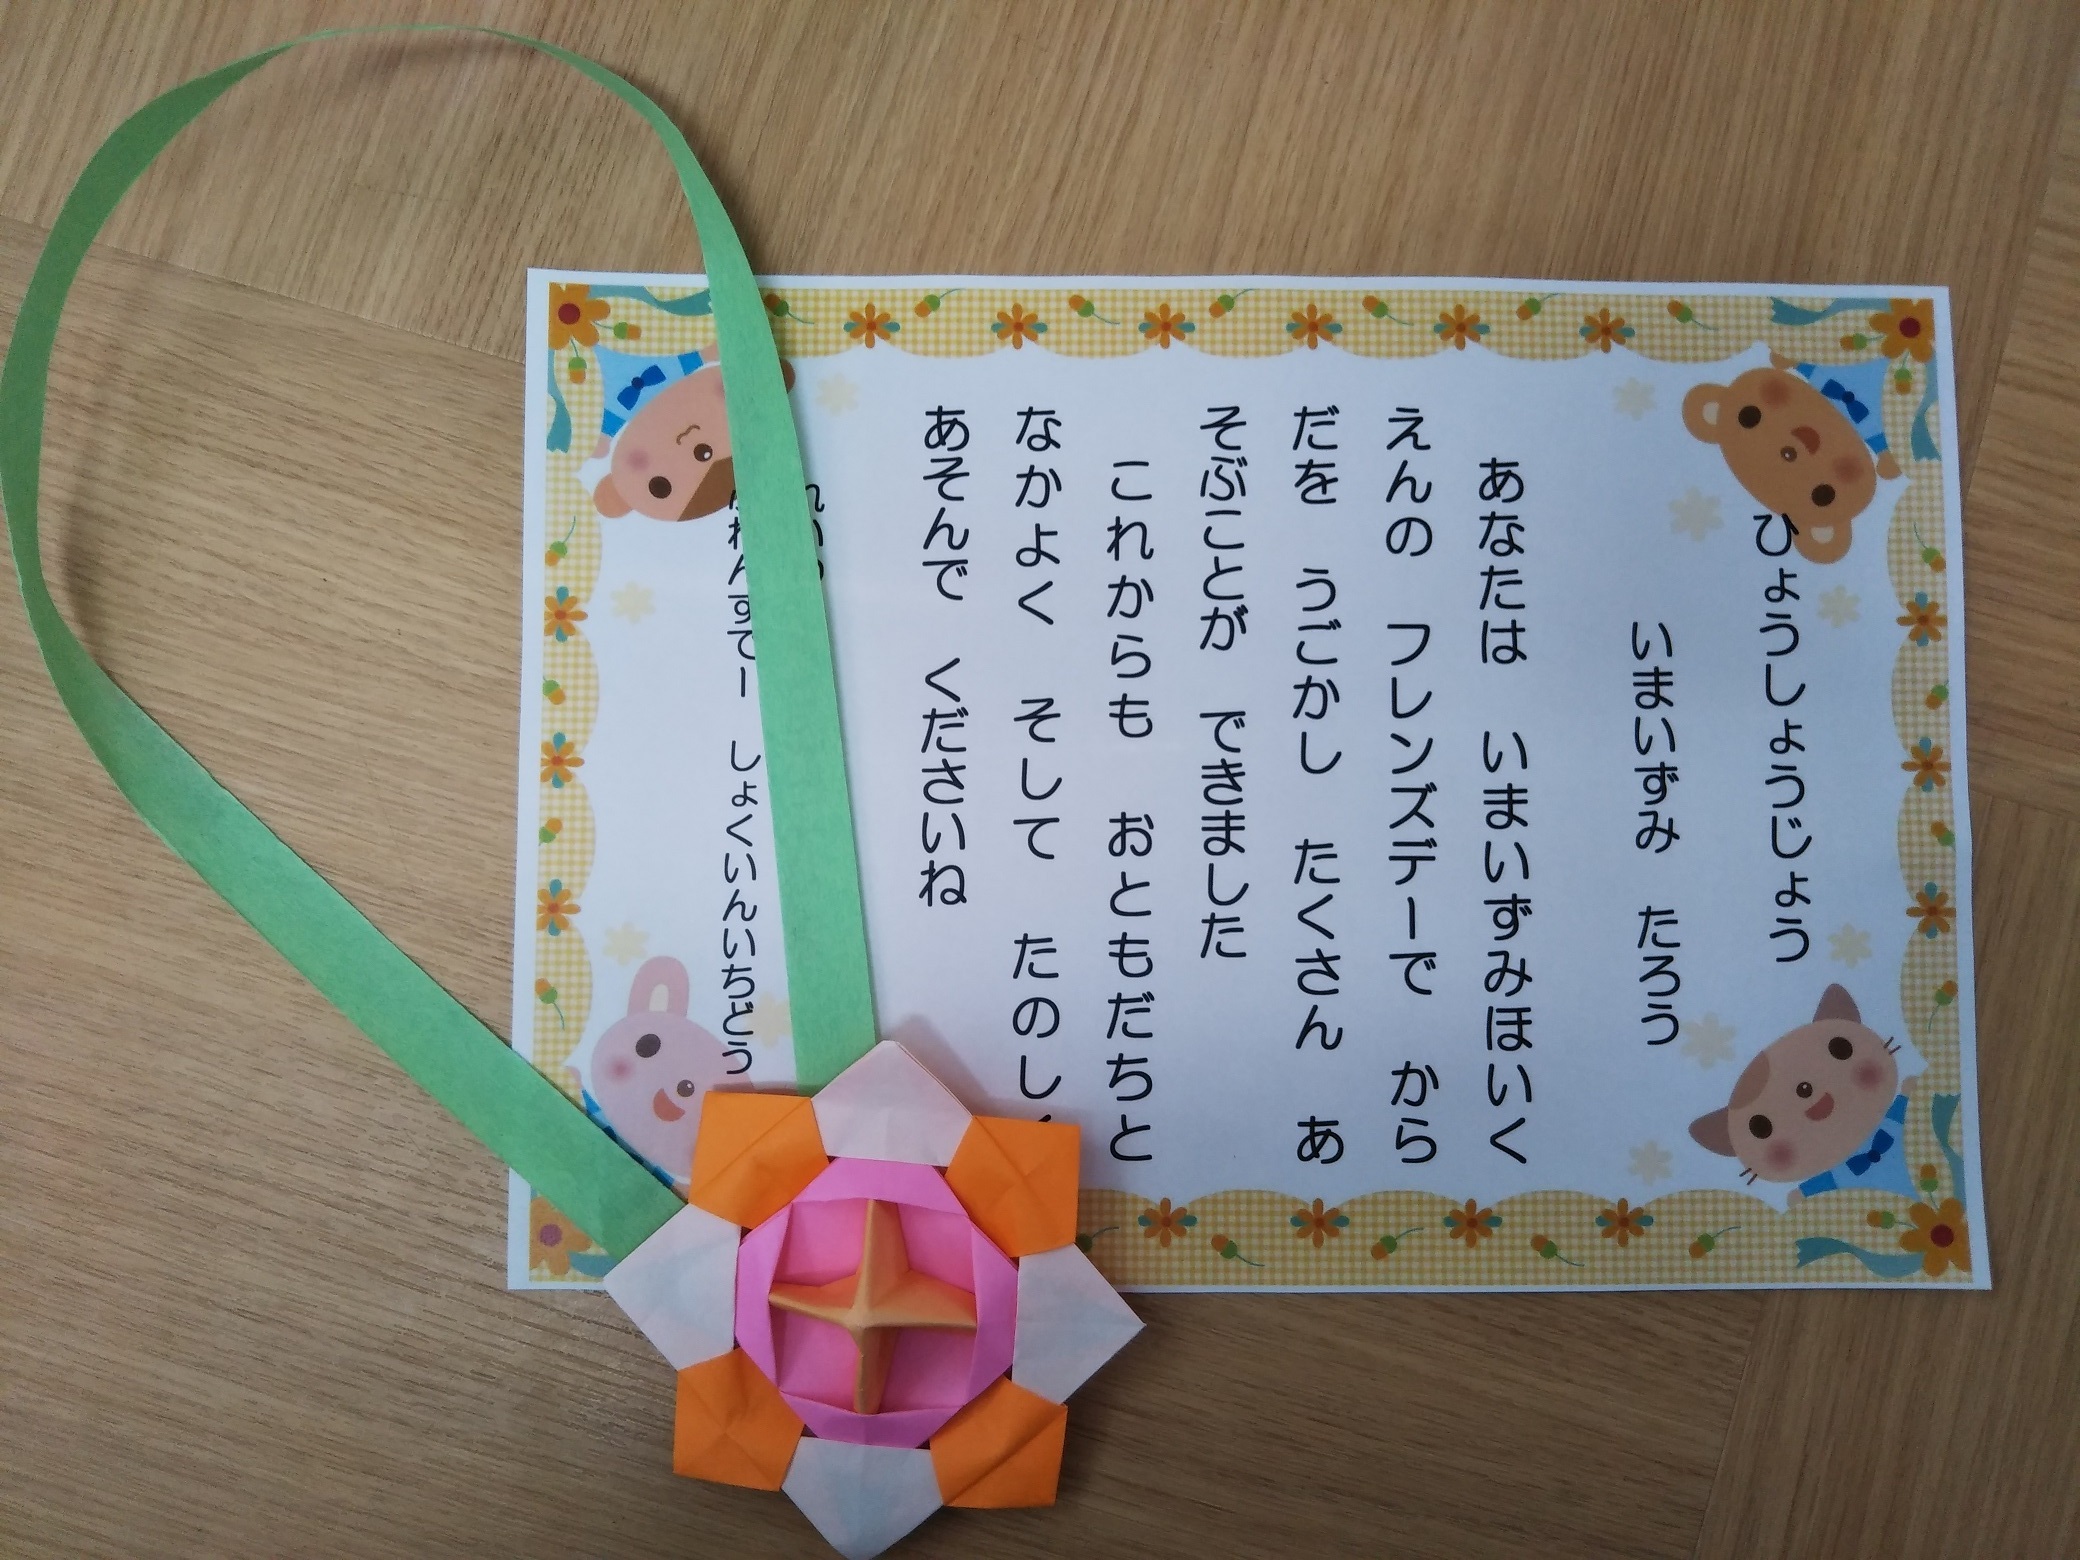 ひょうしょうじょう
いまいずみ たろう
あなたは いまいずみほいく
えんの フレンズデーで から
だを うごかし たくさん あ
そぶことが できました
これからも おともだちと
なかよく そして たのし
あそんで くださいね
れんずでー しょくいんいちどう